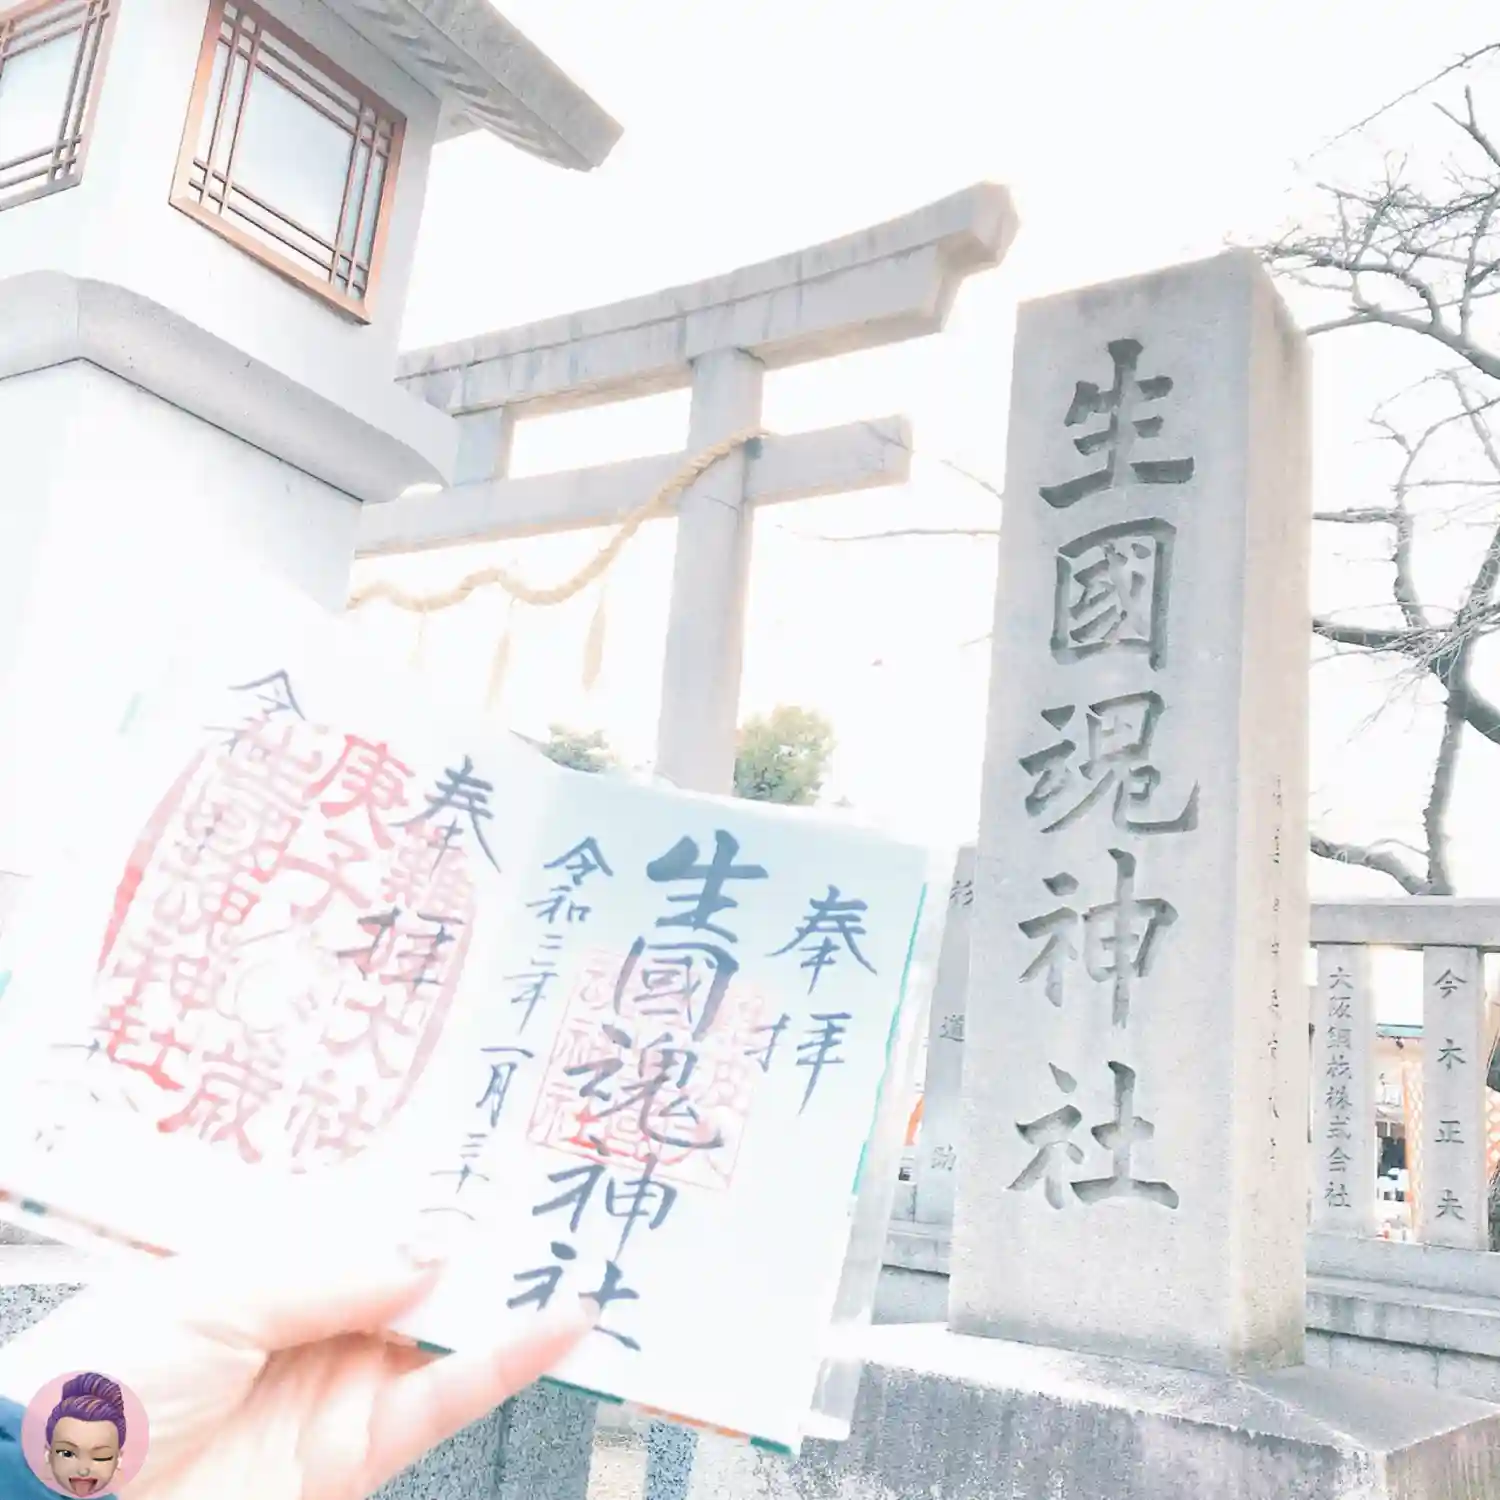 生國魂神社
奉拝
生國魂神社
令和二年一月三十一
奉拝
庚子
大歳
難波大社
生國魂神社
令和
大阪鋼材株式会社
今木正夫
杉道助